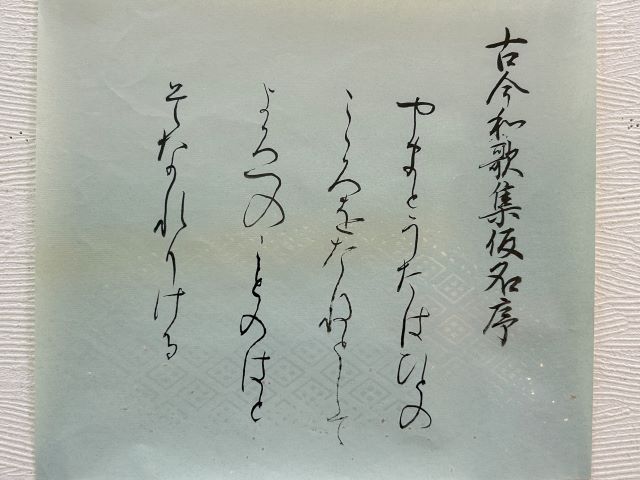 古今和歌集仮名序
やまとうたはひとの
こゝろをたねとして
よろづのことのはと
そなれりける